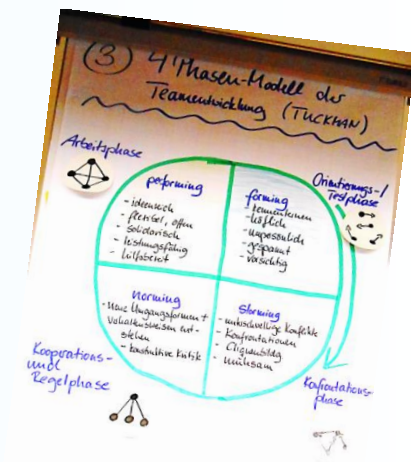 3
4 Phasen-Modell der
Teamentwicklung (TUCKMAN)
Arbeitsphase
performing
- ideenreich
- flexibel, offen
- solidarisch
- leistungsfähig
- hilfsbereit
Orientierungs-/
Testphase
forming
- kennenlernen
- höflich
- unpersönlich
- gespannt
- vorsichtig
norming
- neue Umgangsformen +
Verhaltensweisen ent-
stehen
- konstruktive Kritik
Storming
- unterschwellige Konflikte
- Konfrontationen
- Cliquenbildg
- mühsam
Kooperations-
und
Regelphase
Konfrontations-
phase